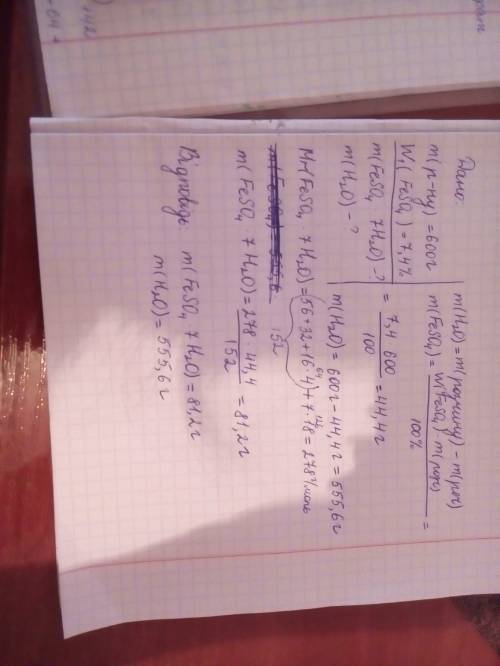 Дано:
m(р-ну) = 600г
W₁(FeSO₄) = 7,4%
m(FeSO₄ 7H₂O) - ?
m(H₂O) - ?
m(H₂O) = m(розчину) - m(реч)
m(FeSO₄) = W(FeSO₄) · m(розч) / 100% =
= 7,4 600 / 100 = 44,4г
m(H₂O) = 600г - 44,4г = 555,6г
Mr(FeSO₄ · 7H₂O) = (56+32+16·4)+7·18 = 278 г/моль
64 126
152
m(FeSO₄ 7H₂O) = 278 · 44,4 / 152 = 81,2г
Відповідь m(FeSO₄ 7H₂O) = 81,2г
m(H₂O) = 555,6г